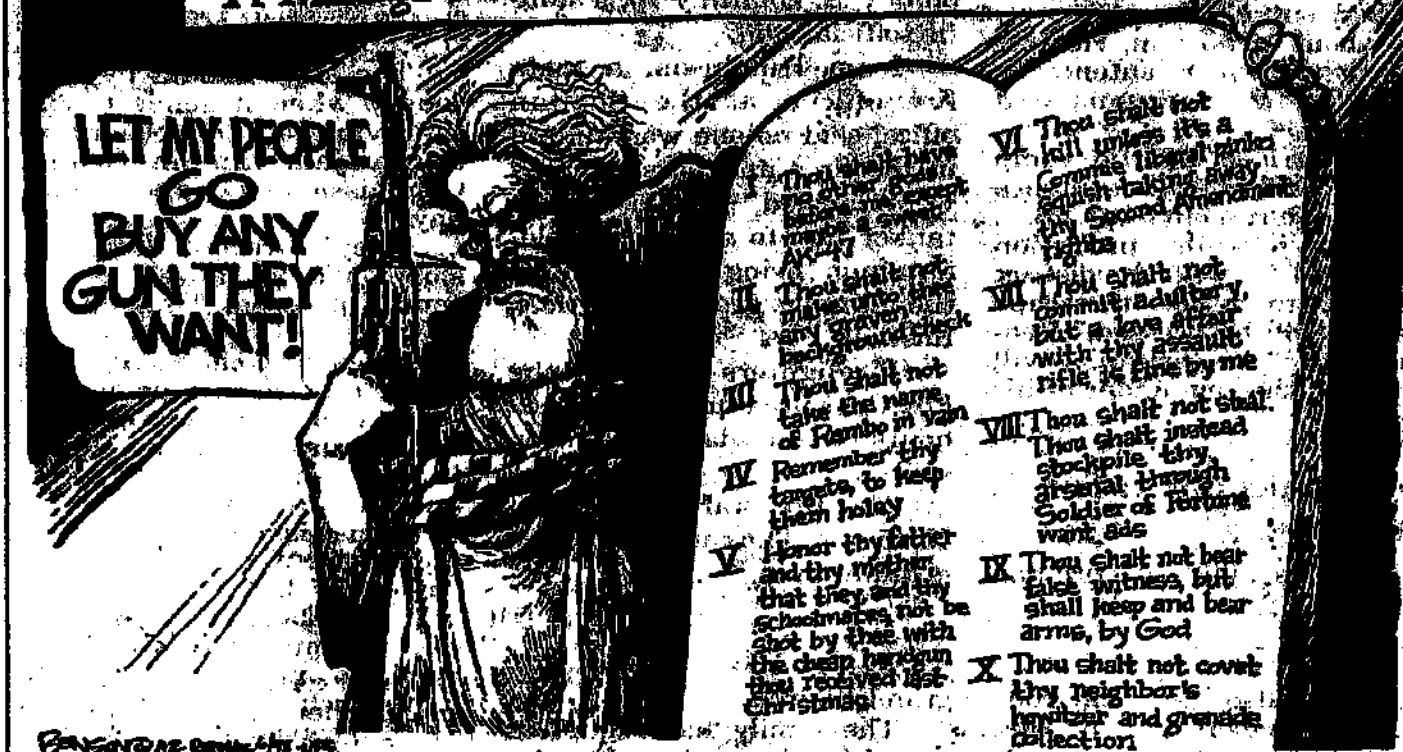 LET MY PEOPLE
GO
BUY ANY
GUN THEY
WANT!
I Thou shalt have
no other gods
before me except
maybe a sweet
AK-47
II Thou shalt not
make unto thee
any graven
background check
III Thou shalt not
take the name
of Rambo in vain
IV Remember thy
targets, to keep
them holey
V Honor thy father
and thy mother,
that they, and thy
schoolmates, not be
shot by thee with
the cheap handgun
thou received last
Christmas
VI Thou shalt not
kill unless it's a
Commie liberal pinko
squish taking away
thy Second Amendment
rights
VII Thou shalt not
commit adultery,
but a love affair
with thy assault
rifle is fine by me
VIII Thou shalt not steal.
Thou shalt instead
stockpile thy
arsenal through
Soldier of Fortune
want ads
IX Thou shalt not bear
false witness, but
shall keep and bear
arms, by God
X Thou shalt not covet
thy neighbor's
howitzer and grenade
collection
BENSON